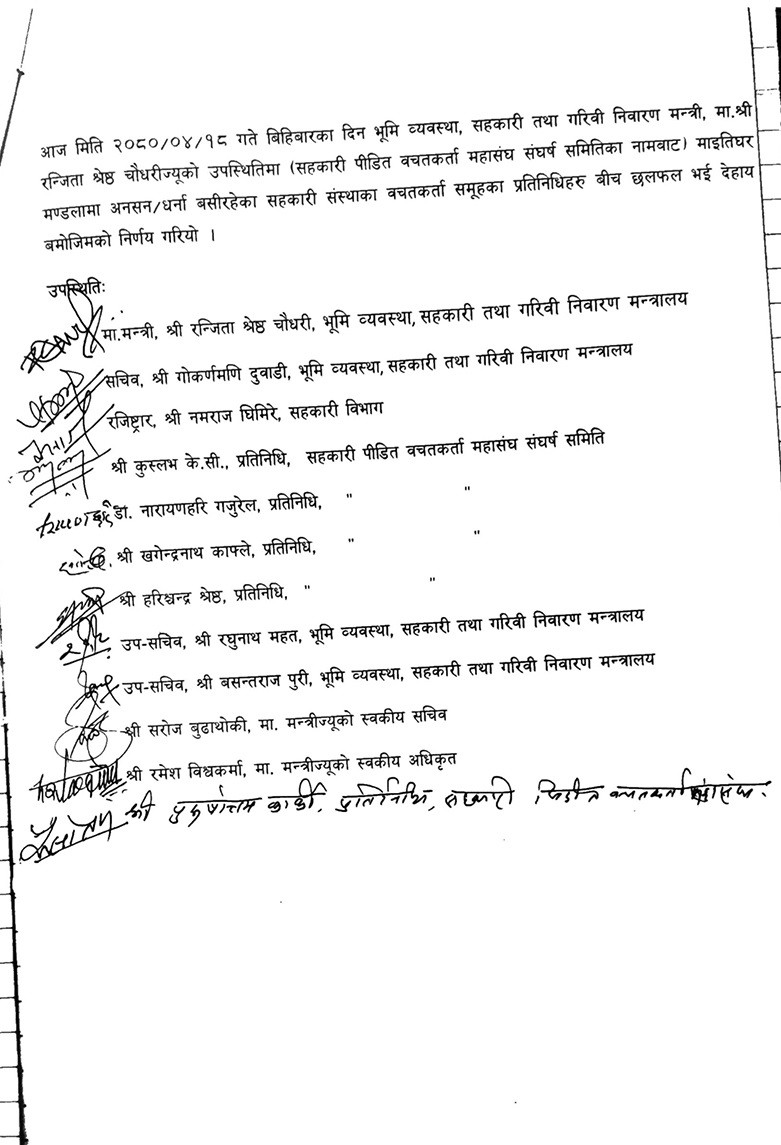 आज मिति २०८०/०४/१८ गते बिहिबारका दिन भूमि व्यवस्था, सहकारी तथा गरिवी निवारण मन्त्री, मा.श्री
रन्जिता श्रेष्ठ चौधरीज्यूको उपस्थितिमा (सहकारी पीडित वचतकर्ता महासंघ संघर्ष समितिका नामबाट) माइतिघर
मण्डलामा अनसन/धर्ना बसीरहेका सहकारी संस्थाका वचतकर्ता समूहका प्रतिनिधिहरु बीच छलफल भई देहाय
बमोजिमको निर्णय गरियो ।
उपस्थितिः
मा.मन्त्री, श्री रन्जिता श्रेष्ठ चौधरी, भूमि व्यवस्था, सहकारी तथा गरिवी निवारण मन्त्रालय
सचिव, श्री गोकर्णमणि दुवाडी, भूमि व्यवस्था, सहकारी तथा गरिवी निवारण मन्त्रालय
रजिष्ट्रार, श्री नमराज घिमिरे, सहकारी विभाग
श्री कुस्लभ के.सी., प्रतिनिधि, सहकारी पीडित वचतकर्ता महासंघ संघर्ष समिति
डा. नारायणहरि गजुरेल, प्रतिनिधि, " "
श्री खगेन्द्रनाथ काफ्ले, प्रतिनिधि, " "
श्री हरिश्चन्द्र श्रेष्ठ, प्रतिनिधि, " "
उप-सचिव, श्री रघुनाथ महत, भूमि व्यवस्था, सहकारी तथा गरिवी निवारण मन्त्रालय
उप-सचिव, श्री बसन्तराज पुरी, भूमि व्यवस्था, सहकारी तथा गरिवी निवारण मन्त्रालय
श्री सरोज बुढाथोकी, मा. मन्त्रीज्यूको स्वकीय सचिव
श्री रमेश विश्वकर्मा, मा. मन्त्रीज्यूको स्वकीय अधिकृत
श्री पुरुषोत्तम कार्की, प्रतिनिधि, सहकारी पिडीत बचतकर्ता